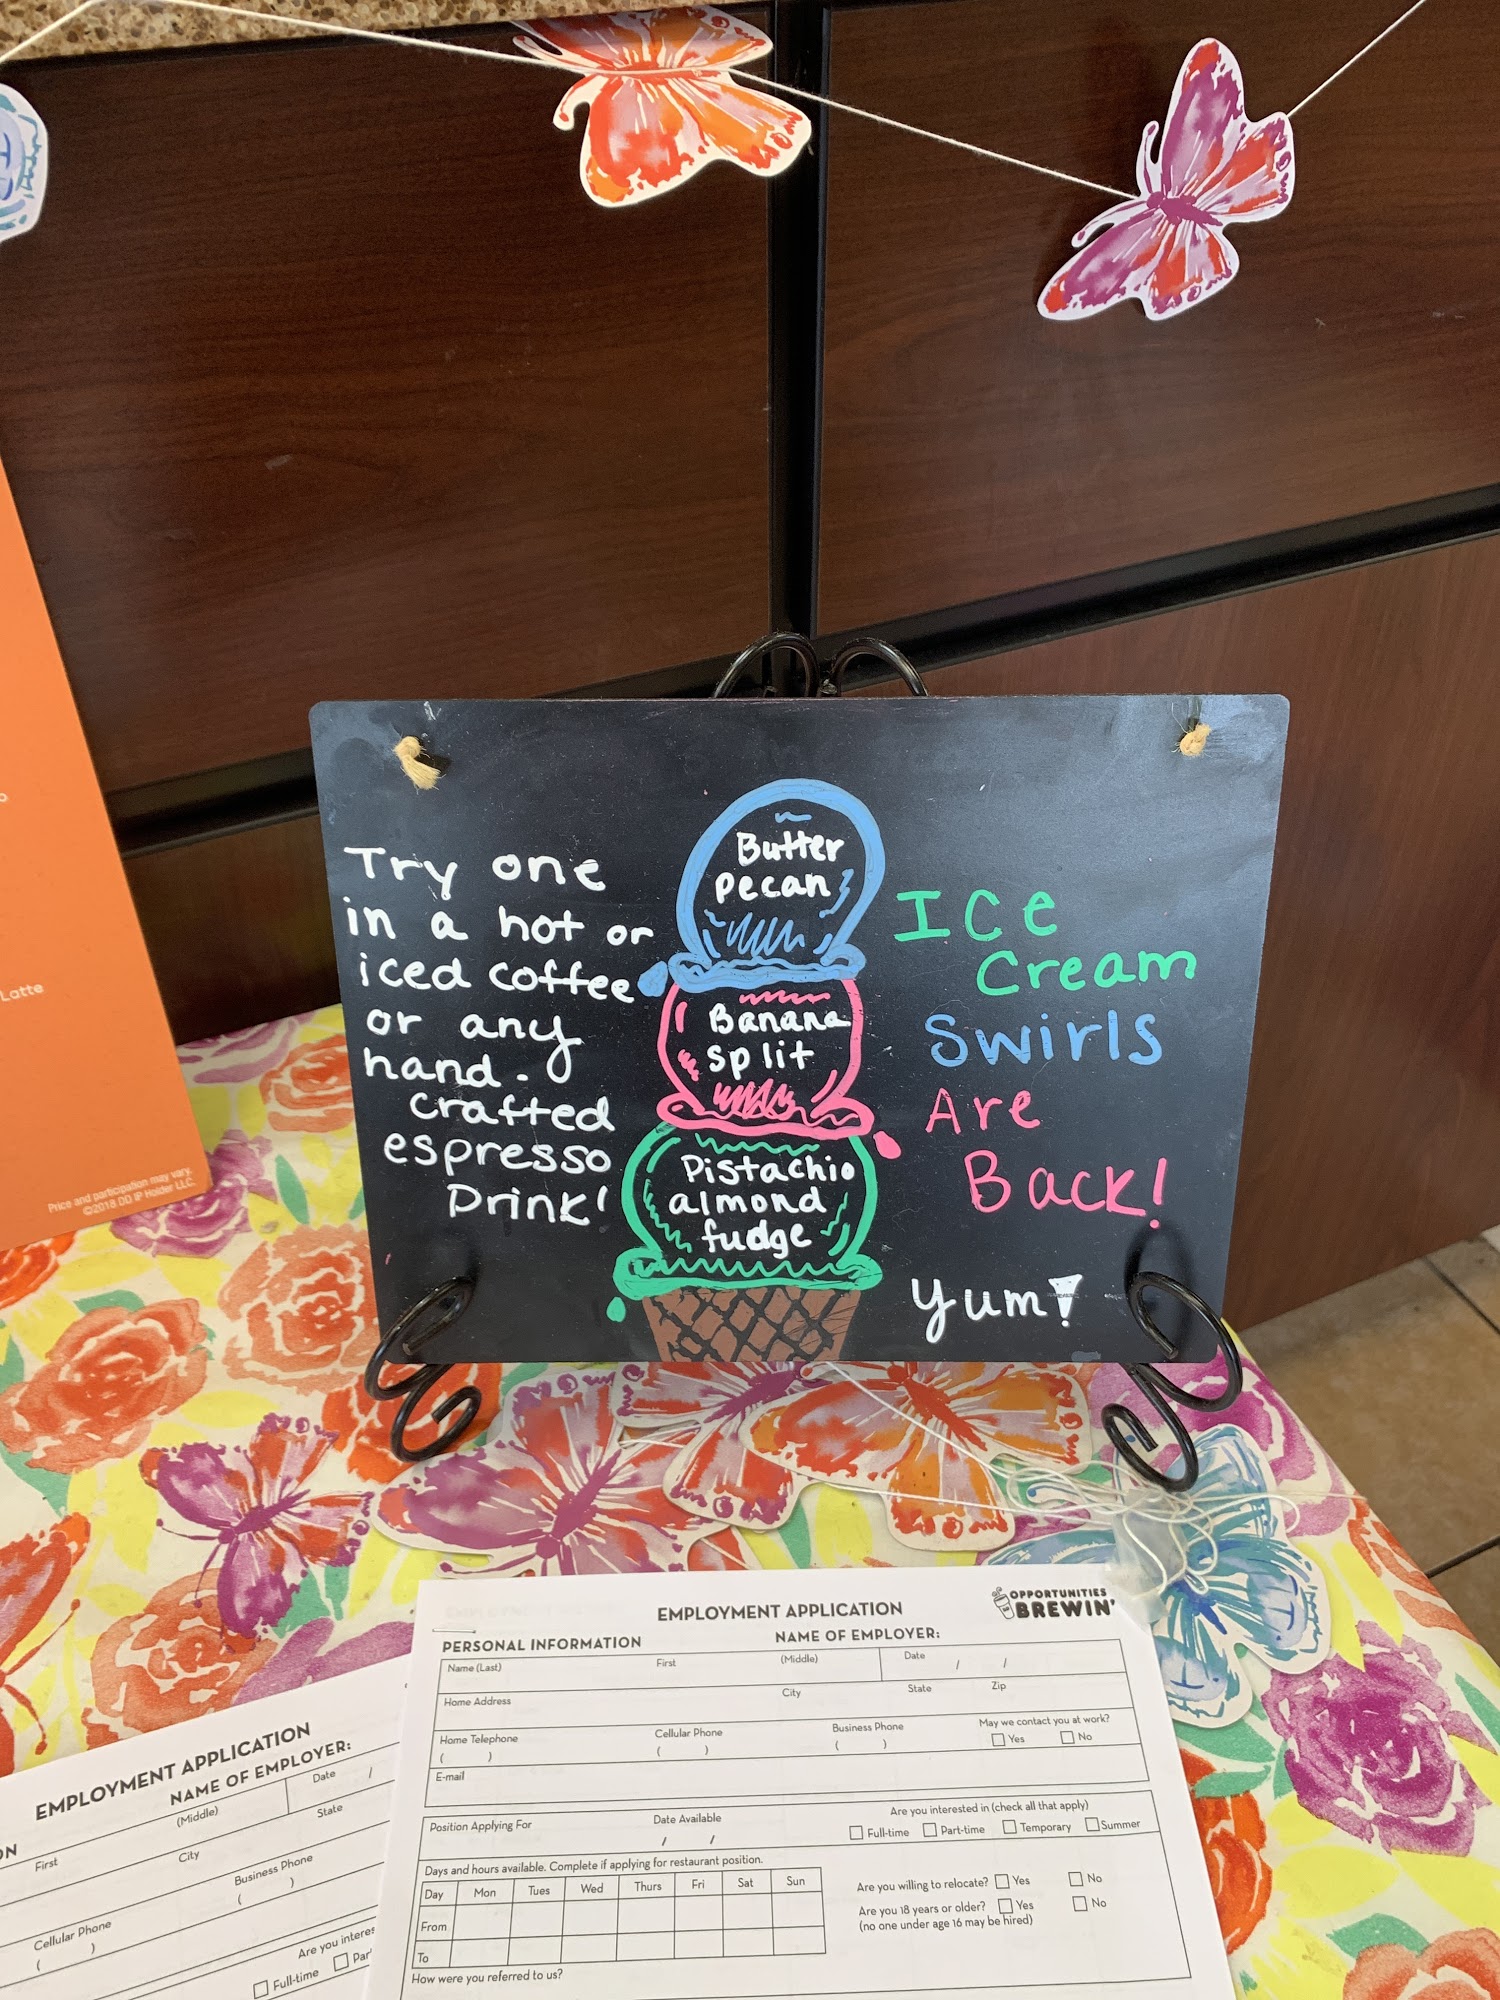 Try one
in a hot or
iced coffee
or any
hand-
crafted
espresso
Drink!
Butter
pecan
Banana
split
Pistachio
almond
fudge
Ice
Cream
Swirls
Are
Back!
Yum!
Latte
Price and participation may vary.
©2018 DD IP Holder LLC.
OPPORTUNITIES
BREWIN'
EMPLOYMENT APPLICATION
PERSONAL INFORMATION NAME OF EMPLOYER:
Name (Last) First (Middle) Date / /
Home Address City State Zip
Home Telephone Cellular Phone Business Phone May we contact you at work?
( ) ( ) ( ) Yes No
E-mail
Position Applying For Date Available Are you interested in (check all that apply)
/ / Full-time Part-time Temporary Summer
Days and hours available. Complete if applying for restaurant position.
Day Mon Tues Wed Thurs Fri Sat Sun
From
To
Are you willing to relocate? Yes No
Are you 18 years or older? Yes No
(no one under age 16 may be hired)
How were you referred to us?
EMPLOYMENT APPLICATION
NAME OF EMPLOYER:
First (Middle) Date /
City State
Cellular Phone Business Phone
( ) ( )
Are you
Full-time